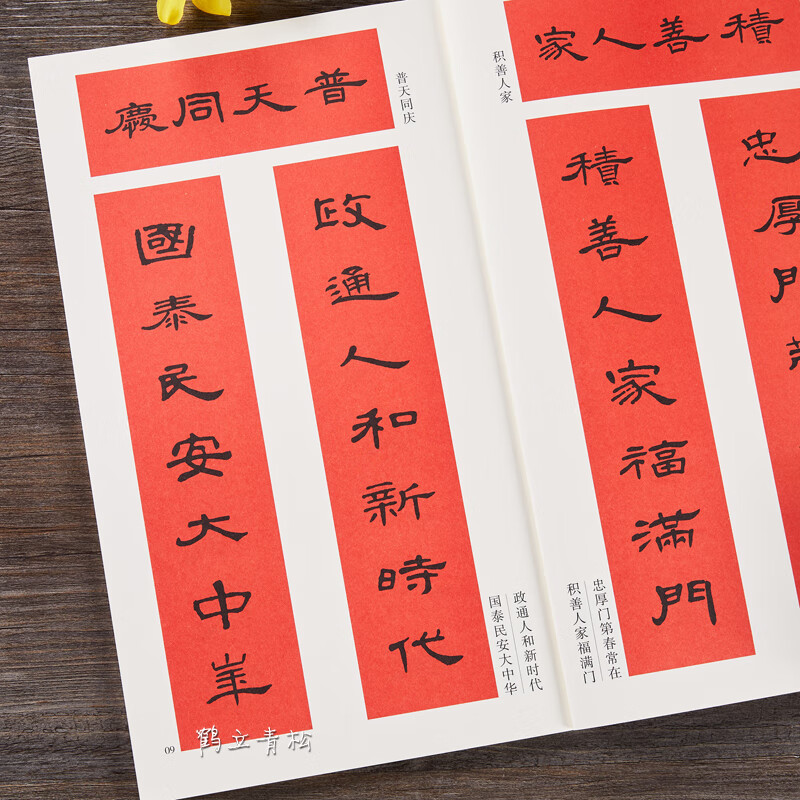 普天同慶
普天同庆
政通人和新時代
國泰民安大中華
政通人和新时代
国泰民安大中华
09
鹤立青松
積善人家
积善人家
忠厚門
積善人家福滿門
忠厚门第春常在
积善人家福满门